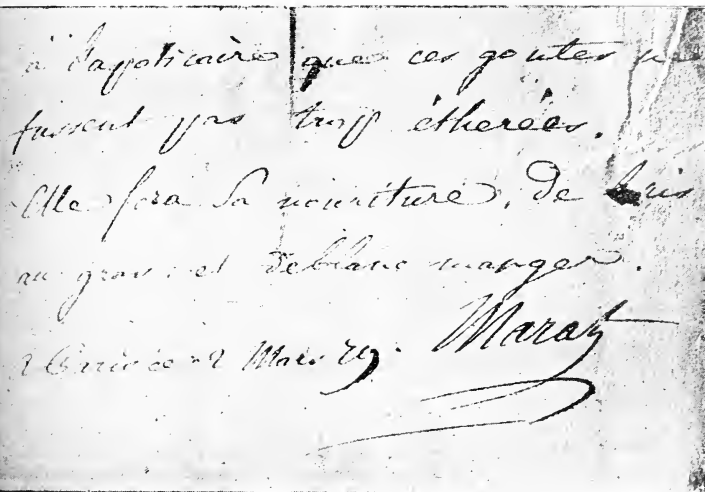 à l'apoticaire que ces goutes ne
fussent pas trop éthereés.
Elle fera sa nouriture, de Ris
au gras et de blanc manger.
2 Mars 79. Marat